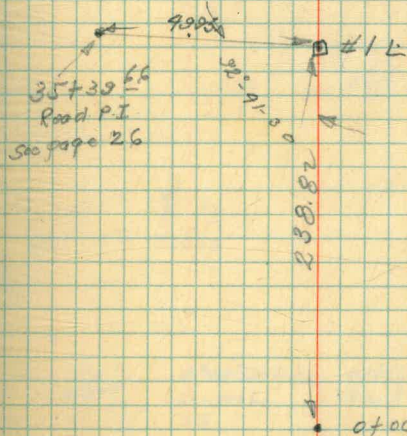 #1 L
35+39 66
Road P.I
See page 26
92°-41-30
238.82
0+00